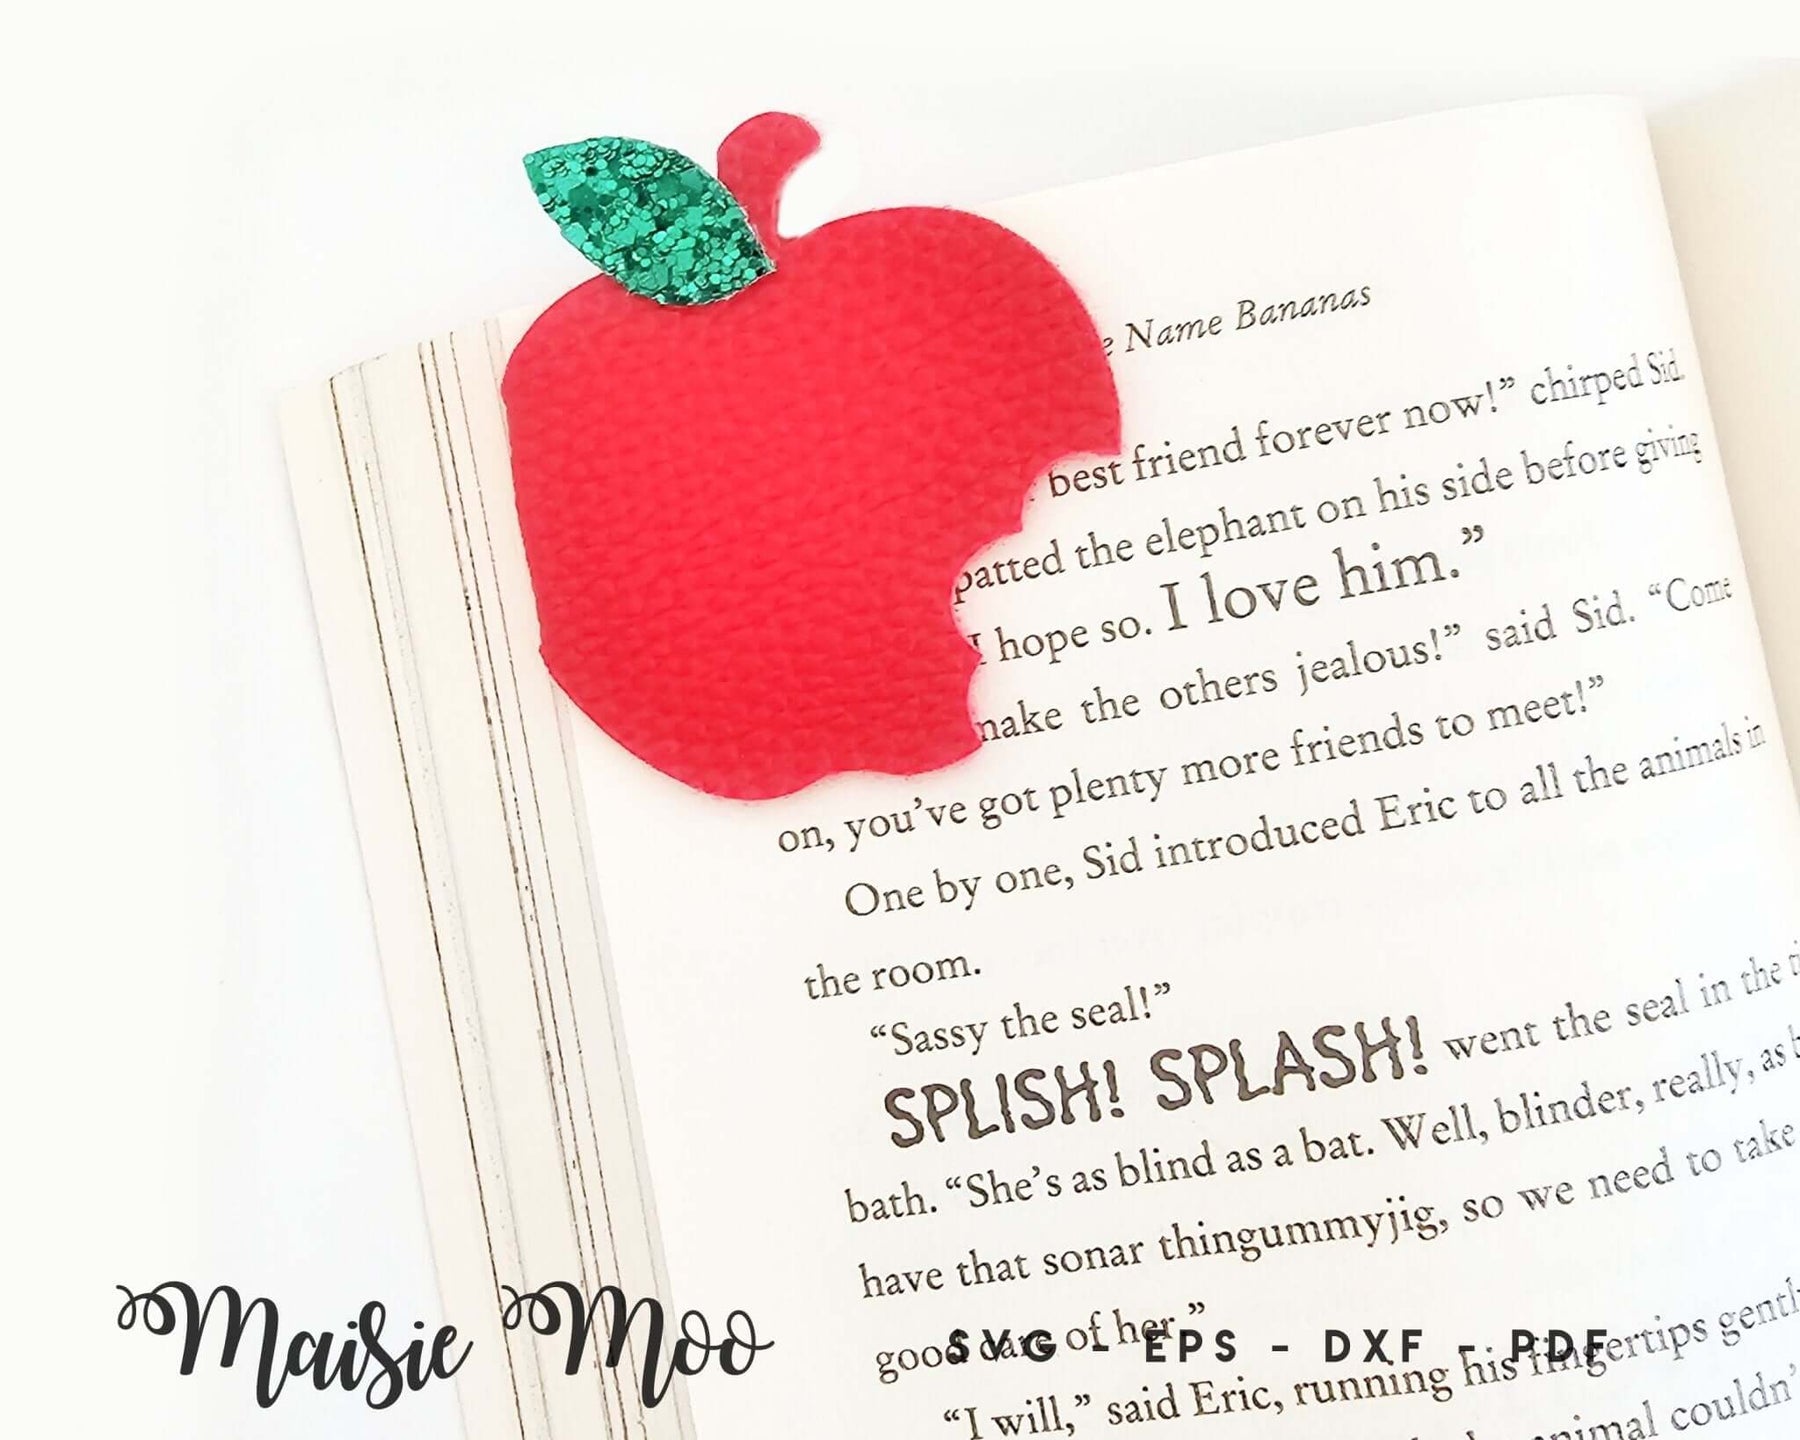 Name Bananas
best friend forever now!” chirped Sid.
patted the elephant on his side before giving
I hope so. I love him.”
make the others jealous!” said Sid. “Come
on, you’ve got plenty more friends to meet!”
One by one, Sid introduced Eric to all the animals in
the room.
“Sassy the seal!”
SPLISH! SPLASH! went the seal in the
bath. “She’s as blind as a bat. Well, blinder, really, as
have that sonar thingummyjig, so we need to take
good care of her.”
“I will,” said Eric, running his fingertips gently
animal couldn’
Maisie Moo
SVG - EPS - DXF - PDF